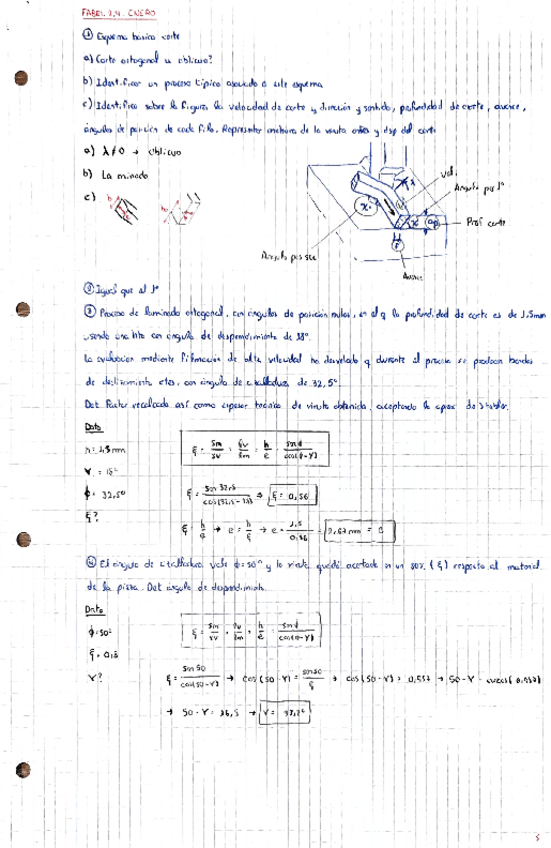 FABRI. 2,4. ENERO
① Esquema básico corte
a) Corte ortogonal u oblicuo?
b) Identificar un proceso típico asociado a este esquema
c) Identificar sobre la figura la velocidad de corte y dirección y sentido, profundidad de corte, avance,
ángulos de posición de cada filo. Representar anchura de la viruta antes y dsp del corte
a) λ≠0 → oblicuo
b) Laminado
c)
h
b
vel.
Angulo pos 1º
Prof corte
ap
Angulo pos sec
f
Avance
② Igual que el 1º
③ Proceso de laminado ortogonal, con ángulos de posición nulos, en el q la profundidad de corte es de 1,5mm
usando una hta con ángulo de desprendimiento de 18º.
La evaluación mediante filmación de alta velocidad ha desvelado q durante el proceso se producen bandas
de deslizamiento ctes, con ángulo de cizalladura de 32,5º.
Det factor recalcado así como espesor teórico de viruta obtenida, aceptando la aprox de
Dato
h = 1,5 mm
γ = 18º
ϕ = 32,5º
ξ?
ξ = Sm/Sv = Vv/Vm = h/e = sen ϕ/cos(ϕ-γ)
ξ = sen 32,5/cos(32,5-18) → ξ = 0,56
ξ = h/e → e = h/ξ → e = 1,5/0,56 = 2,67 mm = e
④ El ángulo de cizalladura vale ϕ=50º y la viruta quedó acortada en un 80% (ξ) respecto al material
de la pieza. Det ángulo de desprendimiento
Dato
ϕ=50º
ξ = 0,8
γ?
ξ = Sm/Sv = Vv/Vm = h/e = sen ϕ/cos(ϕ-γ)
ξ = sen 50/cos(50-γ) → cos(50-γ) = sen 50/ξ → cos(50-γ) = 0,957 → 50-γ = arccos(0,957)
→ 50-γ = 16,5 → γ =
5